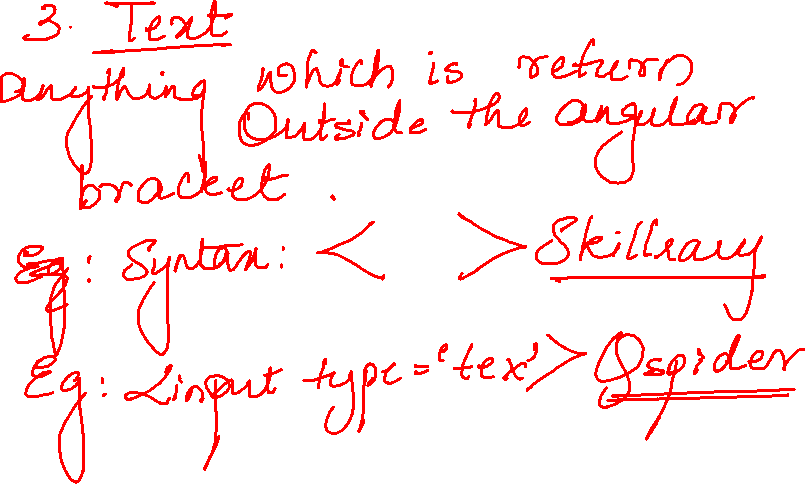 3. Text
anything which is return
Outside the angular
bracket.
Eg: Syntax: < > Skillrary
Eg: <input type='tex'> Qspider